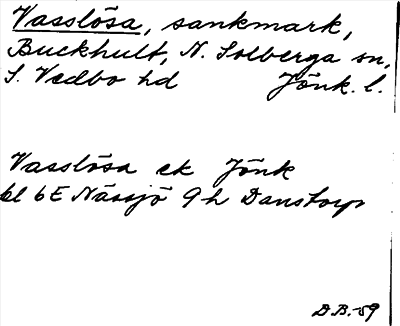 Vasslösa, sankmark,
Buckhult, N. Solberga sn,
S. Vedbo hd Jönk. l.
Vasslösa ek Jönk
bl 6E Nässjö 9h Danstorp
D.B.-59